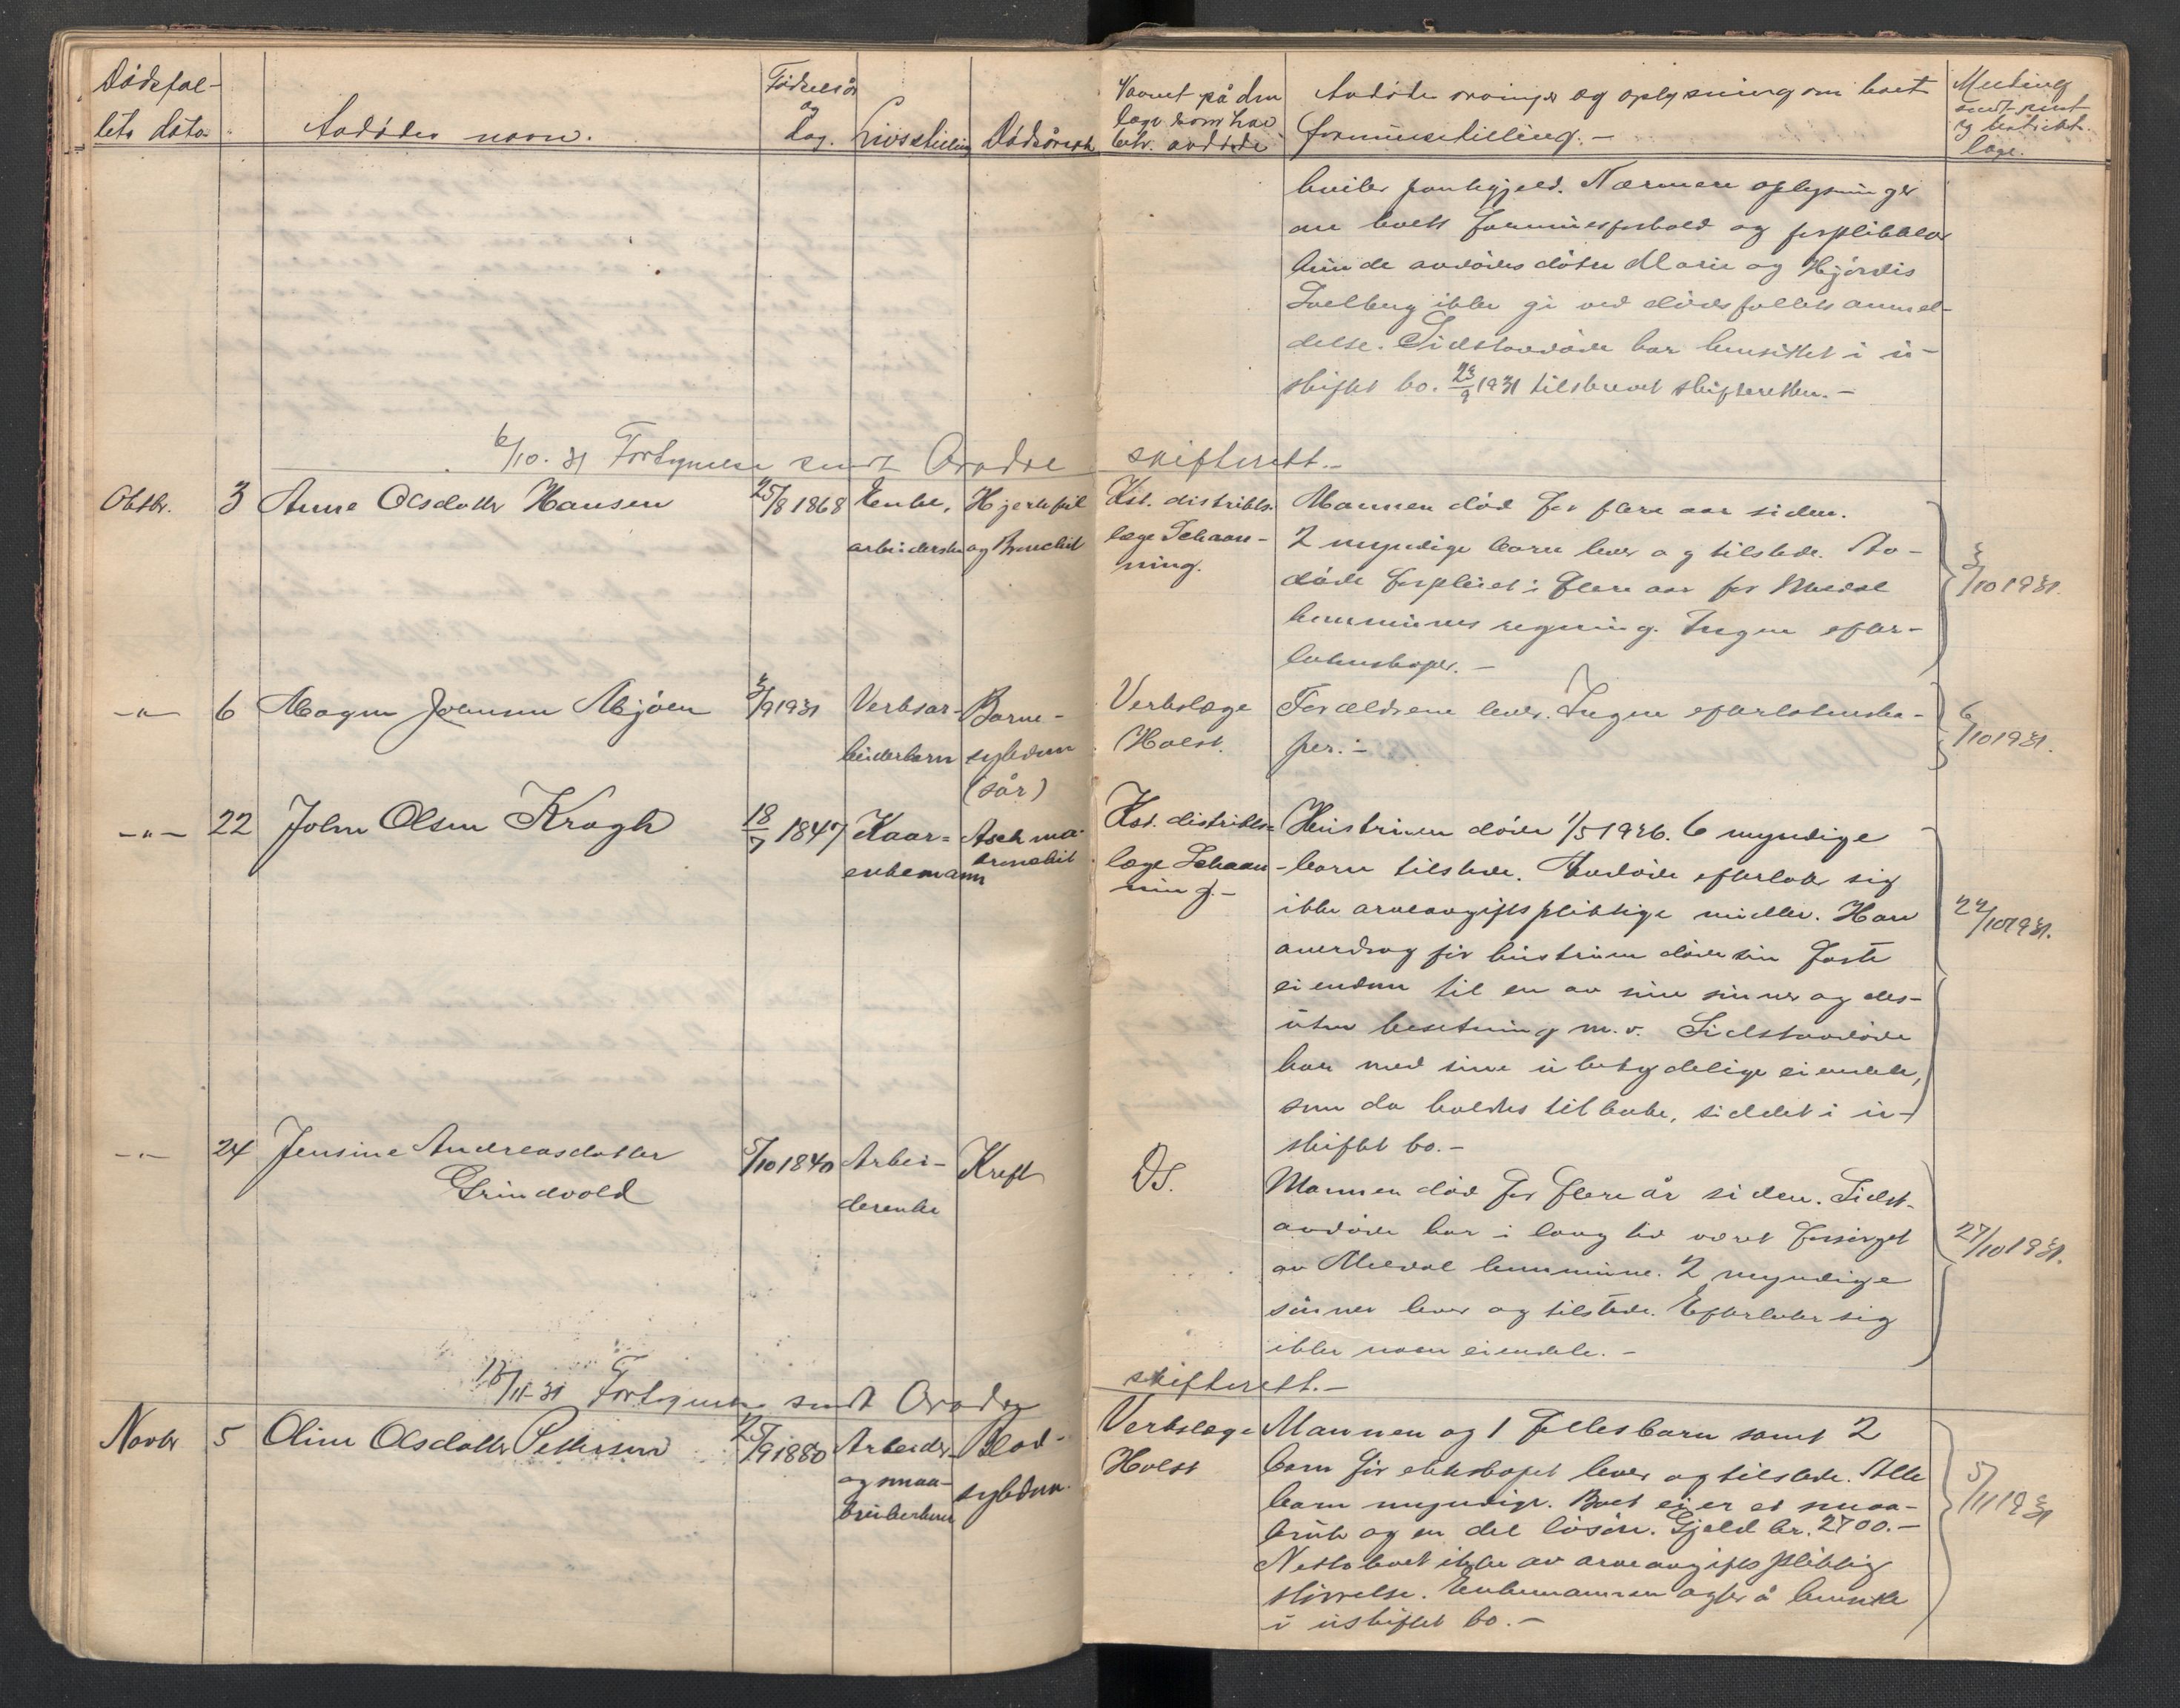 Dødsfal-
lets dato.
Avdødes navn.
Fødselsår
og
dag.
Livsstilling
Dødsårsak
Navnet på den
læge som har
beh. avdøde
Avdødes arvinger og oplysning om boets
formuestilling.-
Melding
sendt
og distrikts-
læge.
hviler pantegjeld. Nærmere oplysninger
om boets formuesforhold og forpliktelser
kunde avdødes døtre Marie og Hjørdis
ikke gi ved dødsfallets anmel-
delse. Sidstavdøde har hensittet i u-
skiftet bo. 23/9 1931 tilskrevet skifteretten.-
6/10. 31 Fortegnelse sendt Orkdal skifterett.-
Oktbr. 3 Anne Olsdatter Hansen
25/8 1868
Enke,
arbeiderske
Hjertefeil
og Bronchit
Kst. distrikts-
læge Schaan-
ning.
Mannen død for flere aar siden.
2 myndige barn lever og tilstede. Av-
døde forpleiet i flere aar for Meldal
kommunes regning. Ingen efter-
latenskaper.-
3/10 1931.
-"- 6 Magne Johnsen Mjøen
3/9 1931
Verksar-
beiderbarn
Barne-
sykdom
(sår)
Verkslæge
Holst.
Forældrene lever. Ingen efterlatenska-
per.-
6/10 1931.
-"- 22 John Olsen Krogh
18/7 1847
Kaar-
enkemann
Asthma-
bronchit
Kst. distrikts-
læge Schaan-
ning.-
Hustruen døde 1/5 1926. 6 myndige
barn tilstede. Avdøde efterlater sig
ikke arveavgiftspliktige midler. Han
overdrog før hustruen døde sin faste
eiendom til en av sine sønner og des-
uten besetning m.v. Sidstavdøde
har med sine ubetydelige eiendele,
som da holdtes tilbake, siddet i u-
skiftet bo.-
22/10 1931.
-"- 24 Jensine Andreasdatter
Grindvold
5/10 1840
Arbei-
derenke
Kreft
DS.
Mannen død for flere år siden. Sidst-
avdøde har i lang tid været forsørget
av Meldal kommune. 2 myndige
sønner lever og tilstede. Efterlater sig
ikke noen eiendele.-
27/10 1931.
13/11-31 Fortegnelse sendt Orkdal skifterett.-
Novbr 5 Oline Olsdatter Pettersen
25/9 1880
Arbeider-
og smaa-
brukerkone
Blod-
sykdom.
Verkslæge
Holst
Mannen og 1 fellesbarn samt 2
barn før ekteskapet lever og tilstede. Alle
barn myndige. Boet eier et smaa-
bruk og en del løsøre. Gjeld kr. 2700.-
Netto boet ikke av arveavgiftspliktig
størrelse. Enkemannen agter å hensitte
i uskiftet bo.-
5/11 1931